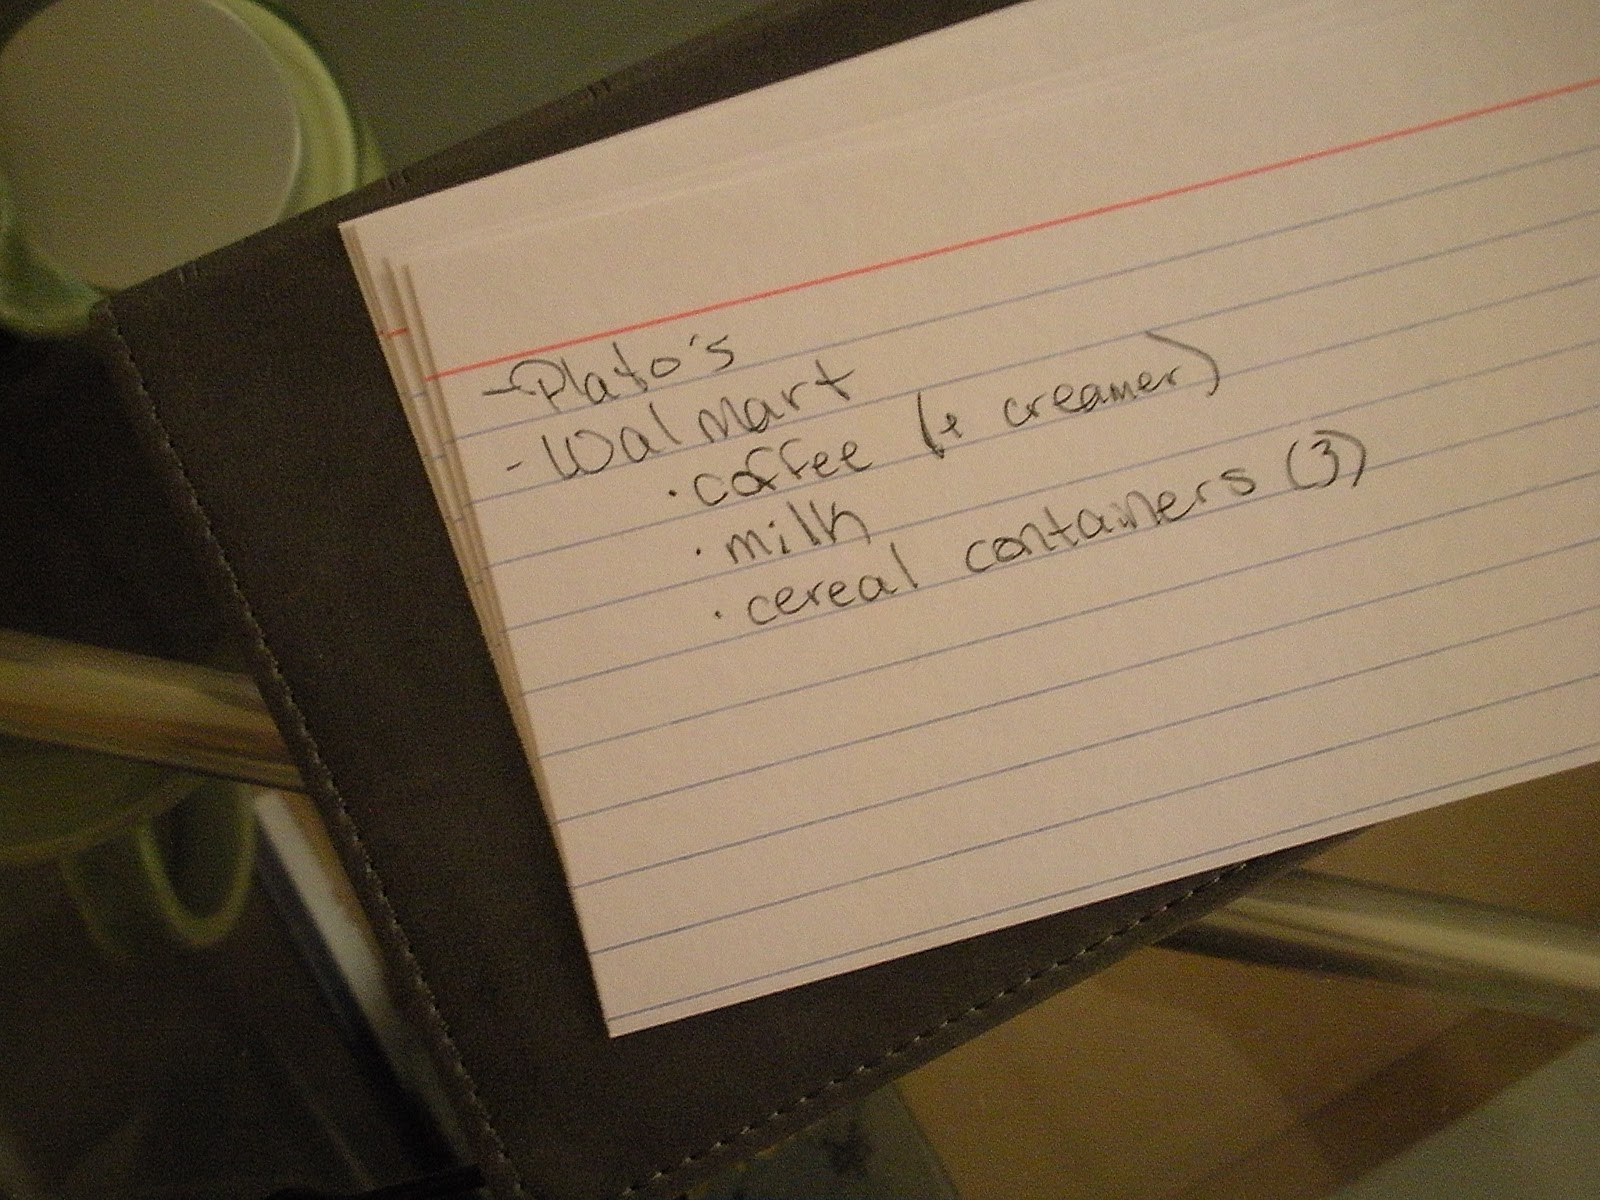 - Plato's
- Walmart
· coffee (+ creamer)
· milk
· cereal containers (3)